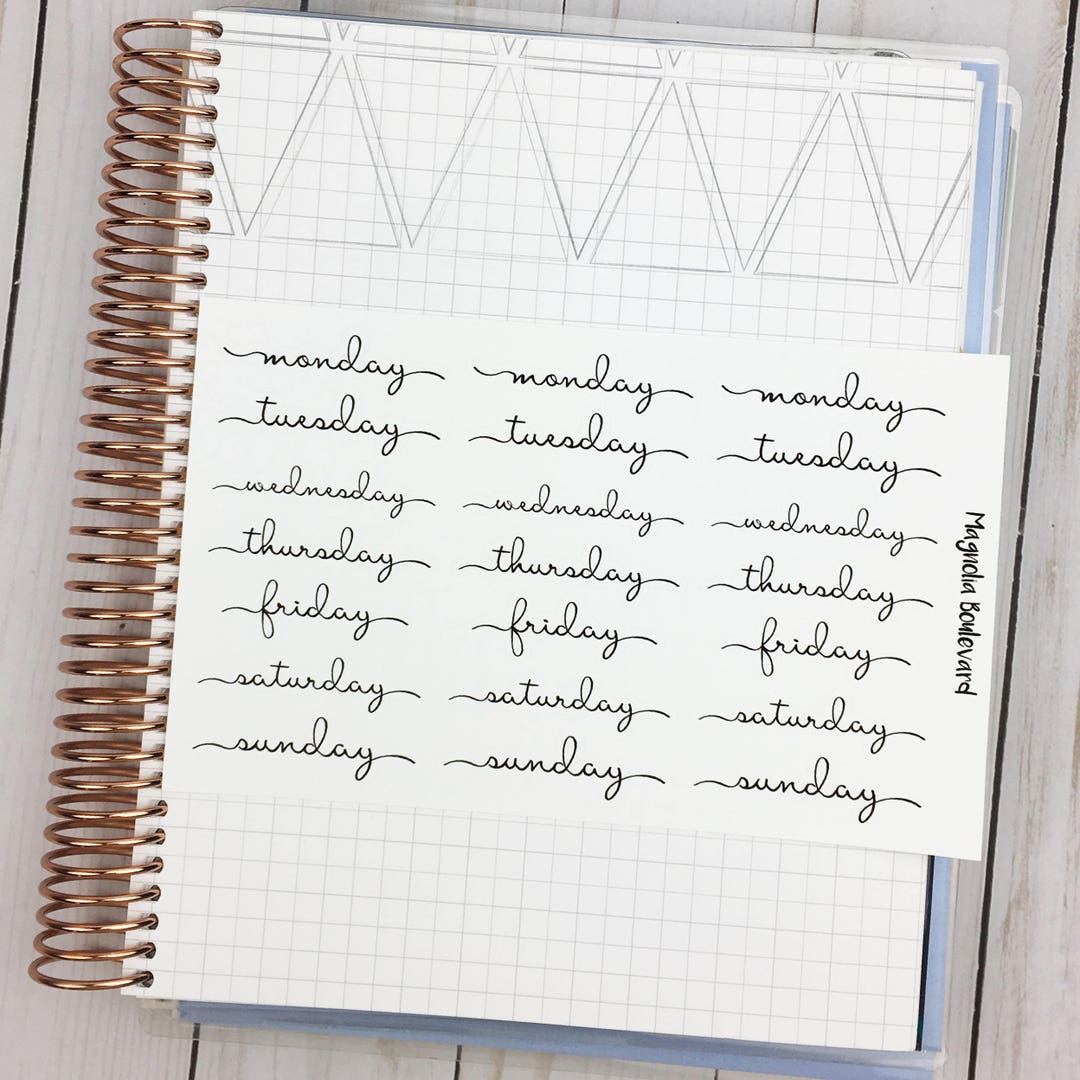 monday monday monday
tuesday tuesday tuesday
wednesday wednesday wednesday
thursday thursday thursday
friday friday friday
saturday saturday saturday
sunday sunday sunday
Magnolia Boulevard